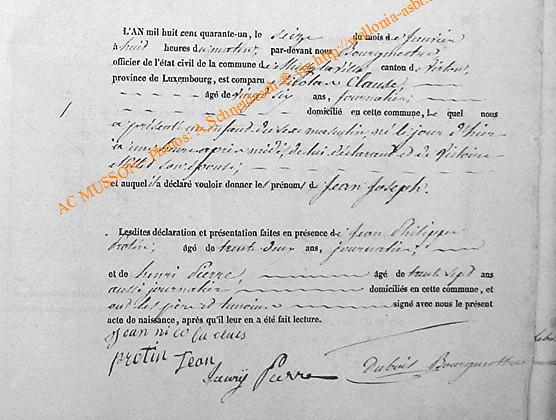 L'AN mil huit cent quarante-un, le seize du mois de Janvier
à huit heures du matin, par-devant nous Bourgmestre
officier de l'état civil de la commune de canton de Virton,
province de Luxembourg, est comparu Nicolas Claude,
âgé de vingt six ans, journalier,
domicilié en cette commune, le quel nous
a présenté un enfant du sexe masculin, né le jour d'hier
à une heure après midi, de lui déclarant et de Victoire
son épouse;
et auquel il a déclaré vouloir donner les prénoms de Jean Joseph.
Lesdites déclaration et présentation faites en présence de Jean Philippe
Protin, âgé de trente deux ans, journalier,
et de henri Pierre, âgé de trente sept ans
aussi journalier domiciliés en cette commune, et
ont les père et témoins signé avec nous le présent
acte de naissance, après qu'il leur en a été fait lecture.
Jean nicolas
protin Jean
Pierre
Bourgmestre
AC MUSSON - Photos: A. Schneidesch © http://wallonia-asbl